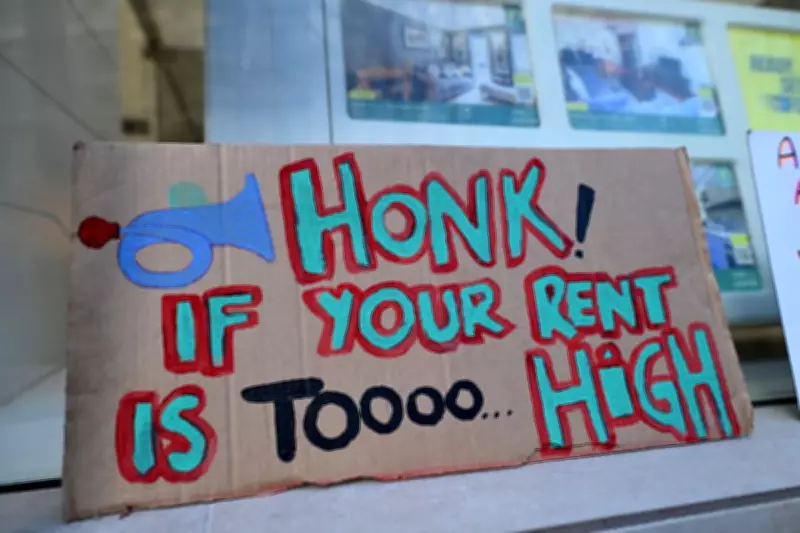 HONK!
IF YOUR RENT
IS TOOOO... HIGH